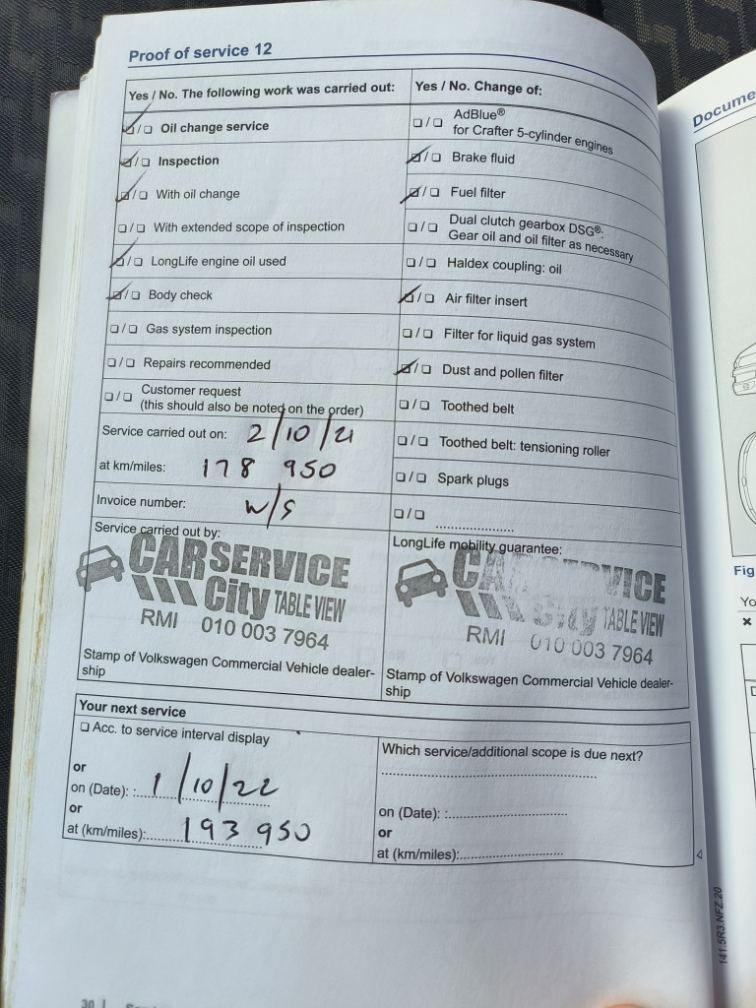 Proof of service 12
Yes / No. The following work was carried out:
☑/☐ Oil change service
☑/☐ Inspection
☑/☐ With oil change
☐/☐ With extended scope of inspection
☑/☐ LongLife engine oil used
☑/☐ Body check
☐/☐ Gas system inspection
☐/☐ Repairs recommended
☐/☐ Customer request
(this should also be noted on the order)
Service carried out on: 2/10/21
at km/miles: 178 950
Invoice number: W/S
Service carried out by:
CAR SERVICE
City TABLE VIEW
RMI 010 003 7964
Stamp of Volkswagen Commercial Vehicle dealer-
ship
Yes / No. Change of:
☐/☐ AdBlue®
for Crafter 5-cylinder engines
☑/☐ Brake fluid
☑/☐ Fuel filter
☐/☐ Dual clutch gearbox DSG®:
Gear oil and oil filter as necessary
☐/☐ Haldex coupling: oil
☑/☐ Air filter insert
☐/☐ Filter for liquid gas system
☑/☐ Dust and pollen filter
☐/☐ Toothed belt
☐/☐ Toothed belt: tensioning roller
☐/☐ Spark plugs
☐/☐ ....................
LongLife mobility guarantee:
CAR SERVICE
City TABLE VIEW
RMI 010 003 7964
Stamp of Volkswagen Commercial Vehicle dealer-
ship
Your next service
☐ Acc. to service interval display
or
on (Date): : 1/10/22
or
at (km/miles): 193 950
Which service/additional scope is due next?
on (Date): :
or
at (km/miles):
30
Docume
Fig
Yo
×
141.5R3.NFZ.20